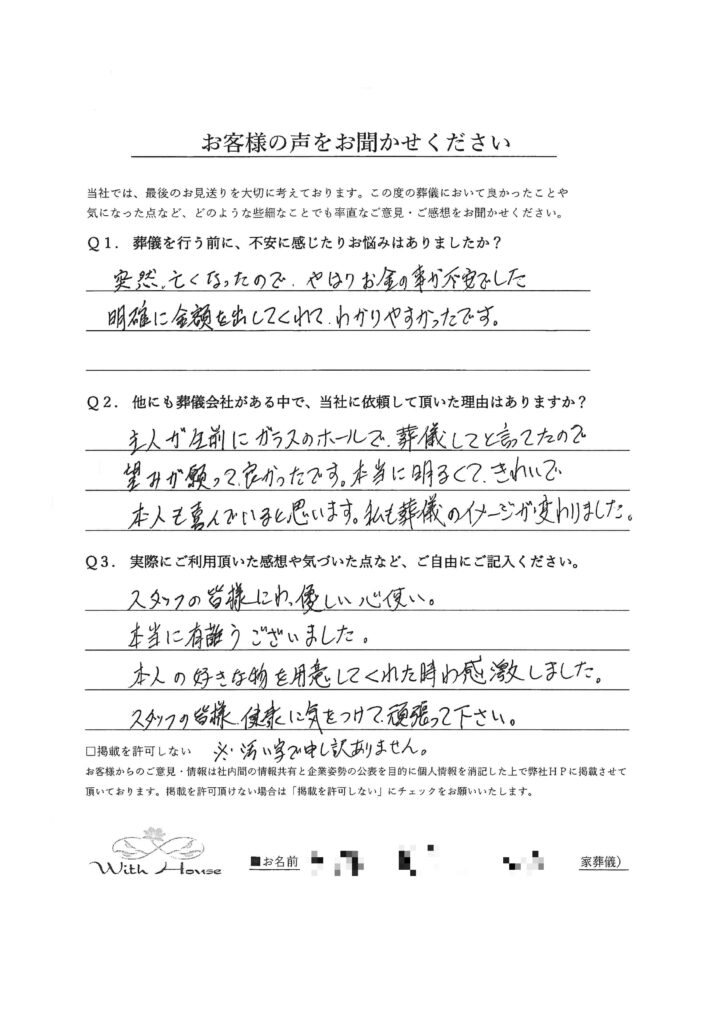 お客様の声をお聞かせください
当社では、最後のお見送りを大切に考えております。この度の葬儀において良かったことや
気になった点など、どのような些細なことでも率直なご意見・ご感想をお聞かせください。
Q1. 葬儀を行う前に、不安に感じたりお悩みはありましたか？
突然、亡くなったので、やはりお金の事が不安でした
明確に金額を出してくれて、わかりやすかったです。
Q2. 他にも葬儀会社がある中で、当社に依頼して頂いた理由はありますか？
主人が生前にガラスのホールで、葬儀してと言ってたので
望みが願って、良かったです。本当に明るくて、きれいで
本人も喜んでいると思います。私も葬儀のイメージが変わりました。
Q3. 実際にご利用頂いた感想や気づいた点など、ご自由にご記入ください。
スタッフの皆様にわ、優しい心使い。
本当に有難うございました。
本人の好きな物を用意してくれた時わ感激しました。
スタッフの皆様、健康に気をつけて、頑張って下さい。
□掲載を許可しない ※汚い字で申し訳ありません。
お客様からのご意見・情報は社内間の情報共有と企業姿勢の公表を目的に個人情報を消記した上で弊社HPに掲載させて
頂いております。掲載を許可頂けない場合は「掲載を許可しない」にチェックをお願いいたします。
With House ■お名前 家葬儀)